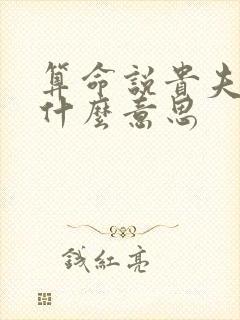 算命說貴夫
什麼意思
錢紅亮